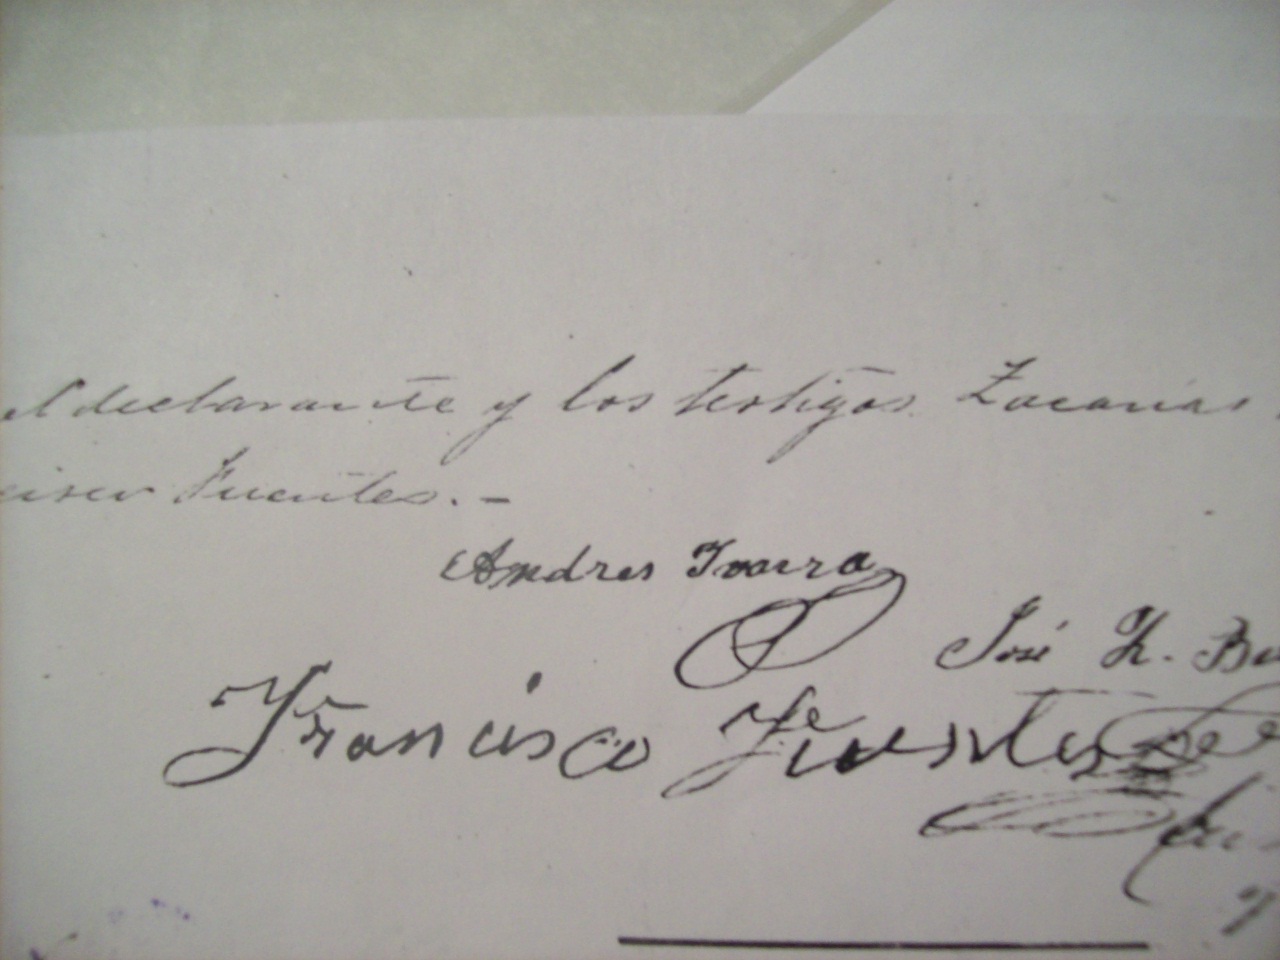 el declarante y los testigos Zacarías
cisco Fuentes.-
Andres Ivarra
José Z. Be
Francisco Fuentes